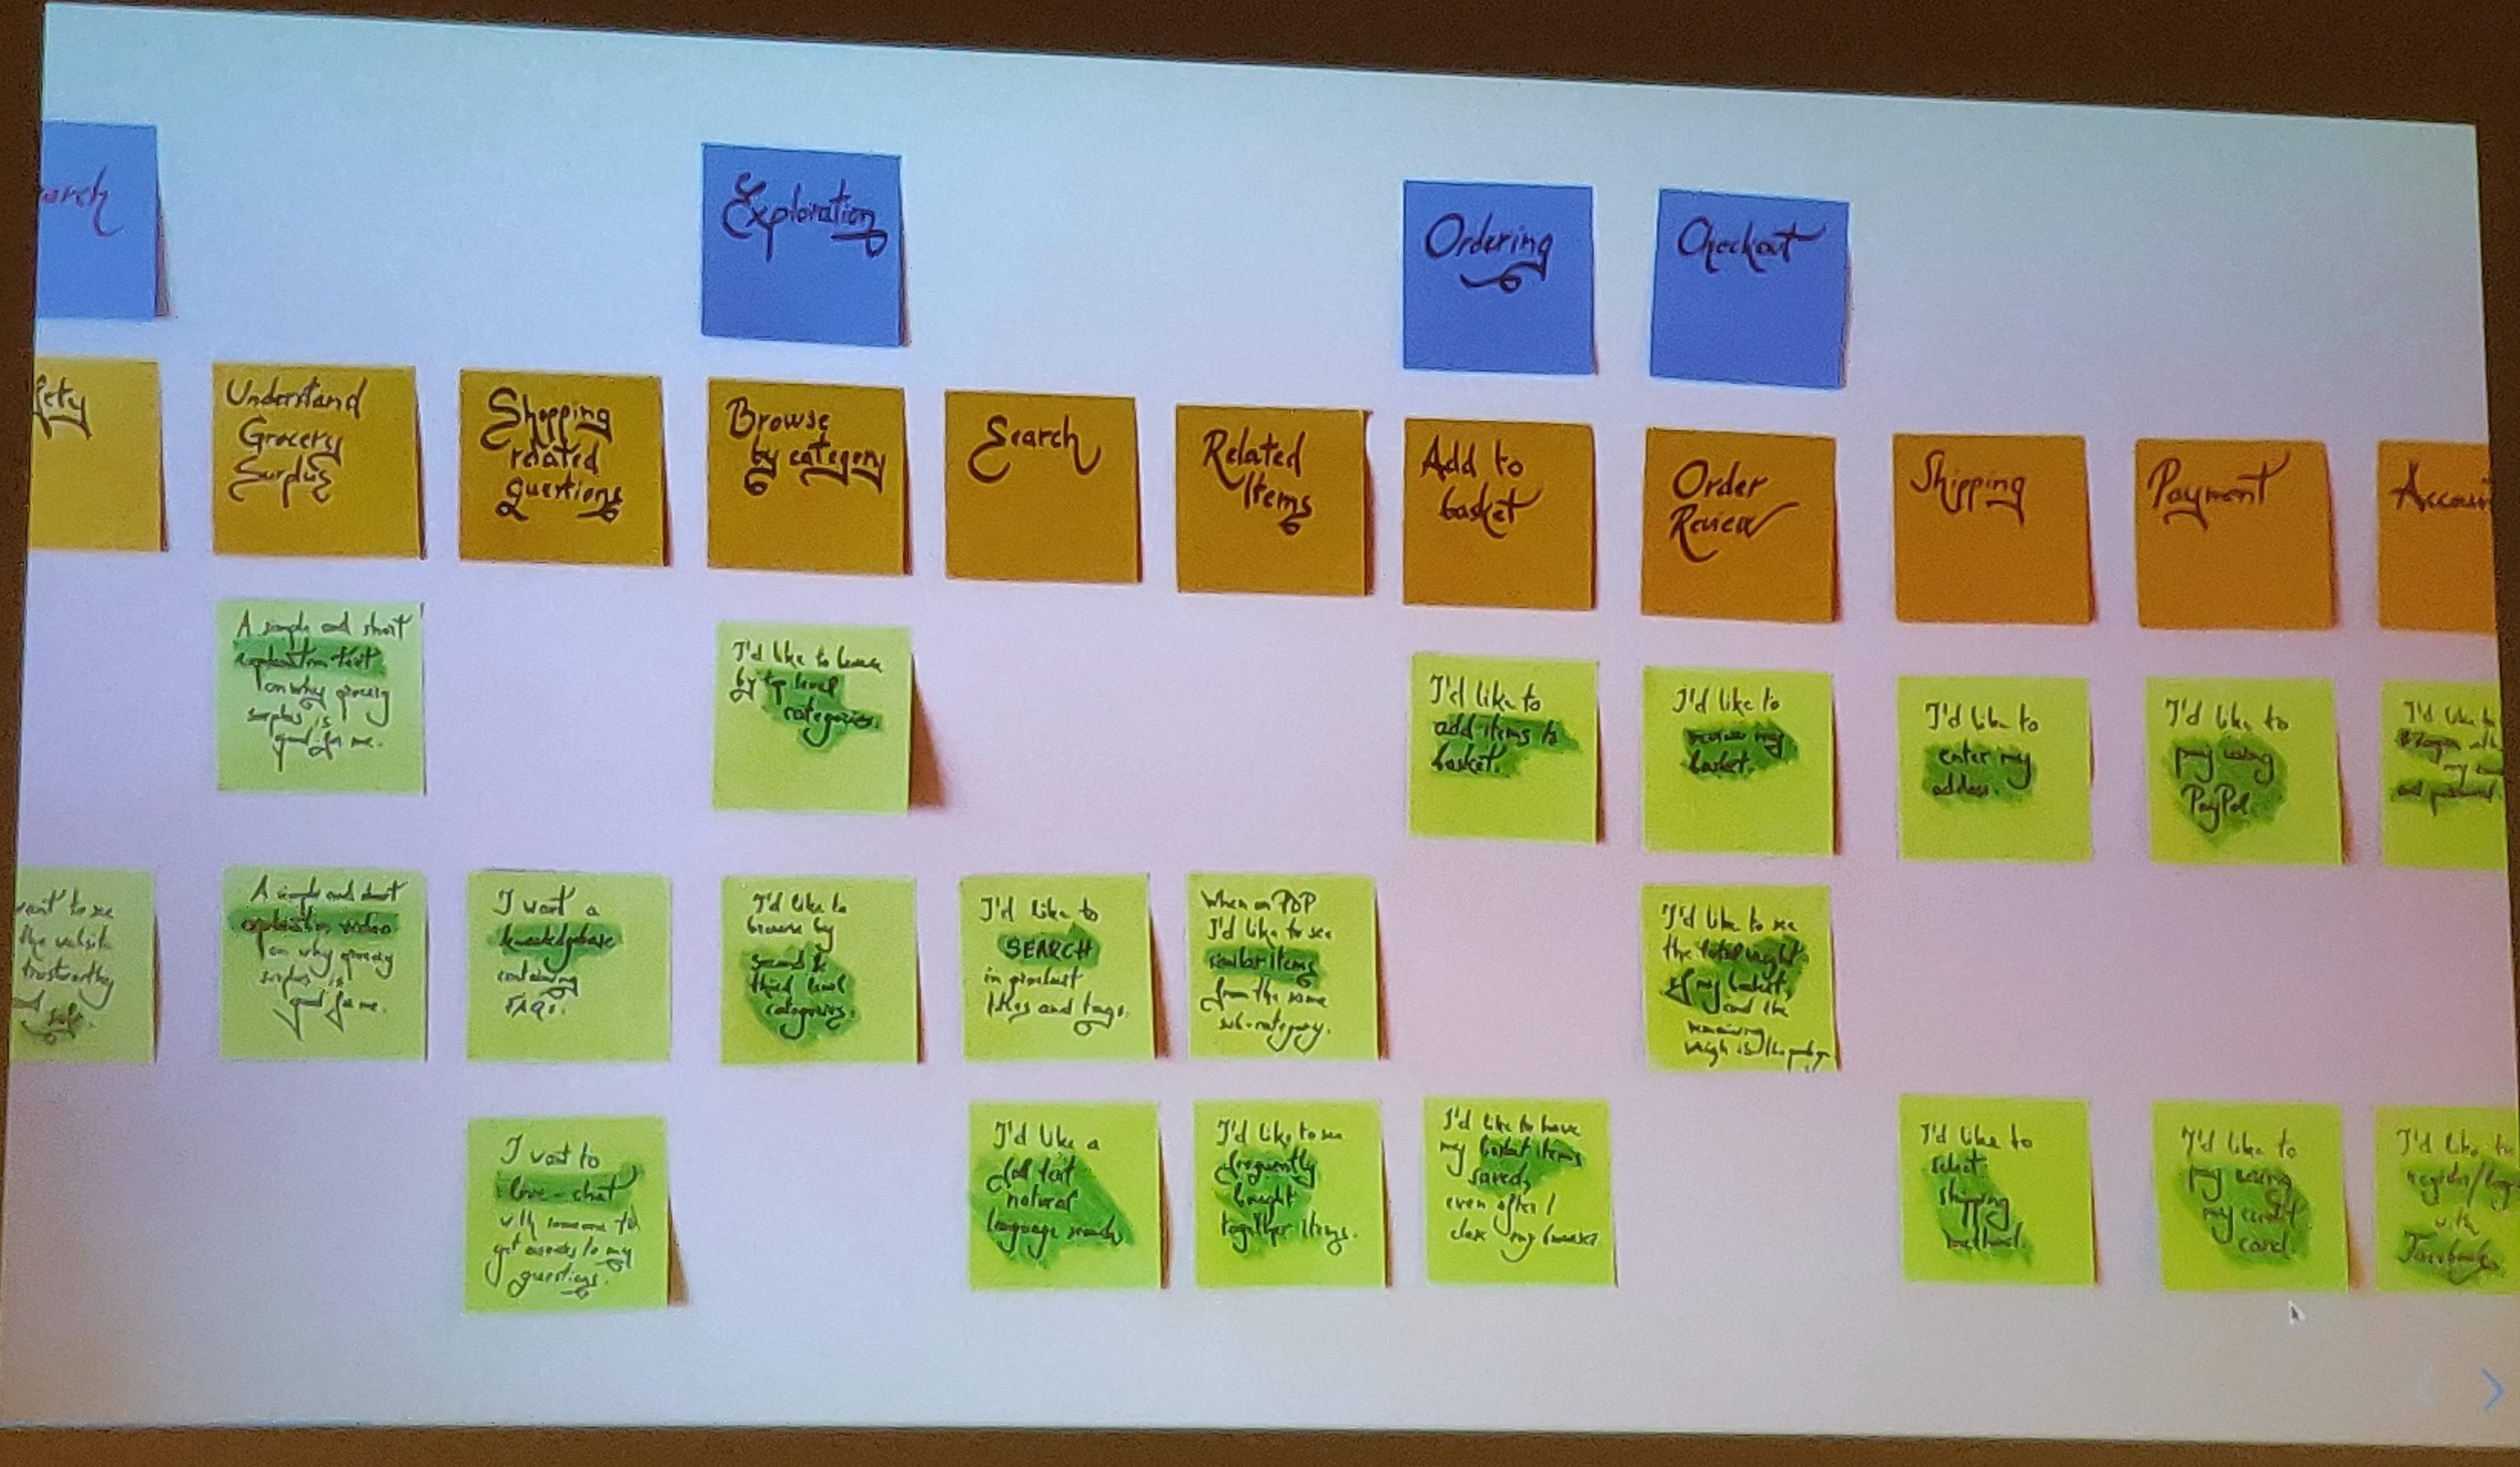 arch
Exploration
Ordering
Checkout
fety
Understand
Grocery
Surplus
Shopping
related
questions
Browse
by category
Search
Related
Items
Add to
basket
Order
Review
Shipping
Payment
Accoun
A simple and short
explanation text
on why grocery
surplus is
good for me.
I'd like to browse
by top level
categories.
I'd like to
add items to
basket.
I'd like to
review my
basket.
I'd like to
enter my
address.
I'd like to
pay using
PayPal.
I'd like to
login with
my
and password.
want to see
the website
trustworthy
safe.
A simple and short
explanation video
on why grocery
surplus is
good for me.
I want a
knowledgebase
containing
FAQs.
I'd like to
browse by
second &
third level
categories.
I'd like to
SEARCH
in product
titles and tags.
When on PDP
I'd like to see
similar items
from the same
sub-category.
I'd like to see
the total weight
of my basket,
and the
remaining
I want to
live-chat
with someone to
get answers to my
questions.
I'd like a
full text
natural
language search
I'd like to see
frequently
bought
together items.
I'd like to have
my basket items
saved,
even after I
close my browser
I'd like to
select
shipping
method.
I'd like to
pay using
my credit
card.
I'd like to
register/log
with
Facebook.